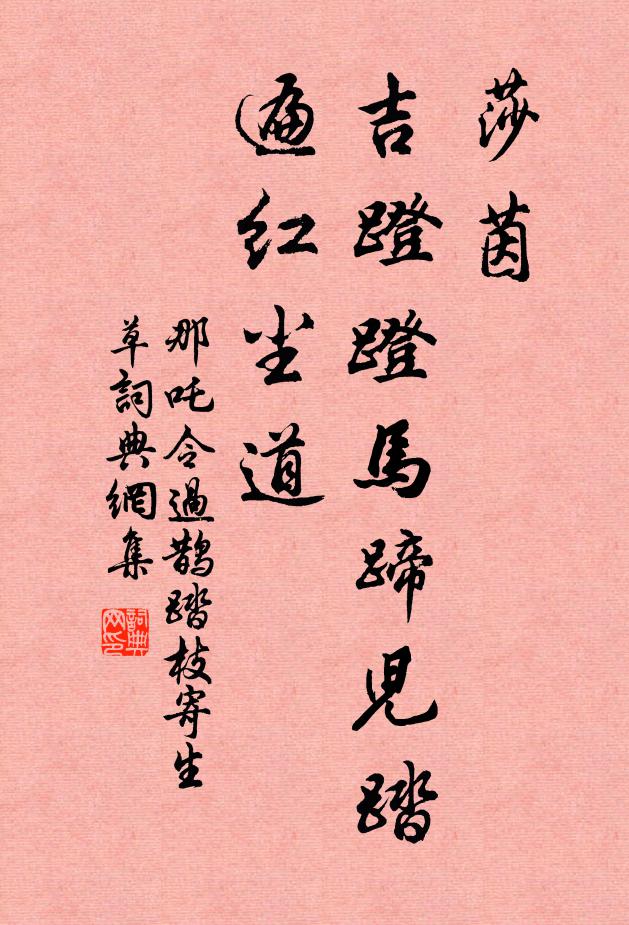 莎茵
吉蹬蹬馬蹄兒踏
遍紅尘道
那吒令過鵲踏枝寄生
草詞典網集
詞典網印